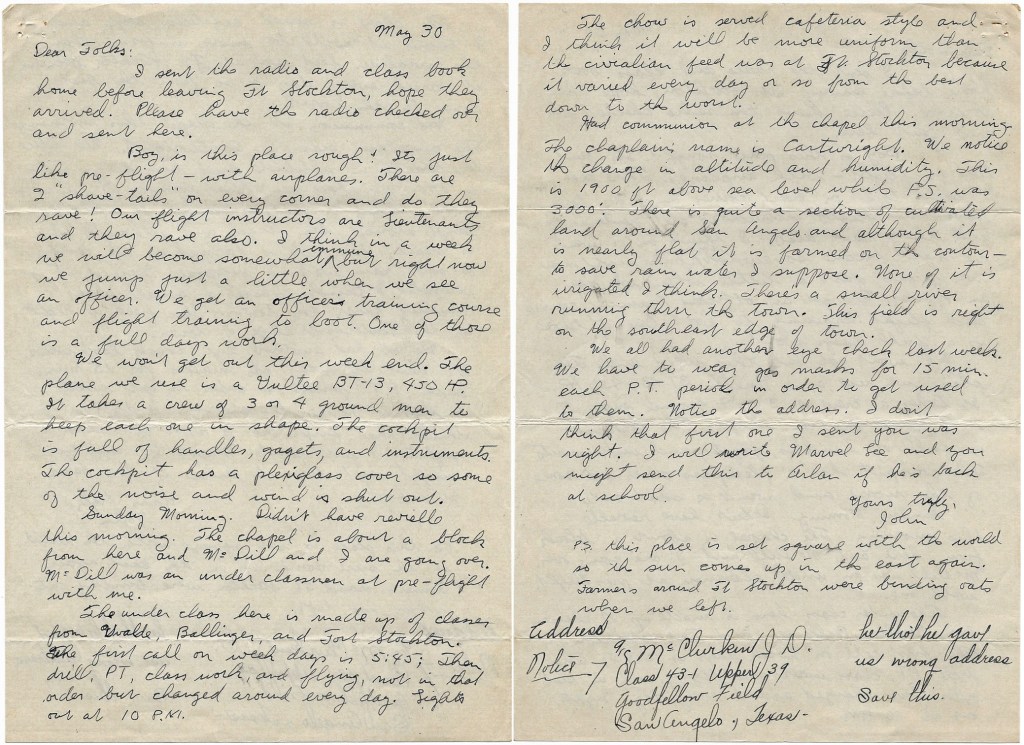 May 30
Dear Folks:
I sent the radio and class book
home before leaving Ft Stockton, hope they
arrived. Please have the radio checked over
and sent here.
Boy, is this place rough! Its just
like pre-flight - with airplanes. There are
2 "shave-tails" on every corner and do they
rave! Our flight instructors are Lieutenants
and they rave also. I think in a week
we will become somewhat immune but right now
we jump just a little when we see
an officer. We get an officers training course
and flight training to boot. One of those
is a full days work.
We won't get out this week end. The
plane we use is a Vultee BT-13, 450 HP.
It takes a crew of 3 or 4 ground men to
keep each one in shape. The cockpit
is full of handles, gagets, and instruments.
The cockpit has a plexiglass cover so some
of the noise and wind is shut out.
Sunday Morning. Didn't have reveille
this morning. The chapel is about a block
from here and McDill and I are going over.
McDill was an under classman at pre-flight
with me.
The under class here is made up of classes
from Uvalde, Ballinger, and Fort Stockton.
The first call on week days is 5:45; Then
drill, PT, class work, and flying, not in that
order but changed around every day. Lights
out at 10 P.M.
The chow is served cafeteria style and
I think it will be more uniform than
the civialian feed was at Ft Stockton because
it varied every day or so from the best
down to the worst.
Had communion at the chapel this morning
The chaplain's name is Cartwright. We notice
the change in altitude and humidity. This
is 1900 ft above sea level while F.S. was
3000'. There is quite a section of cultivated
land around San Angelo and although it
is nearly flat it is farmed on the contour—
to save rain water I suppose. None of it is
irigated I think. There's a small river
running thru the town. This field is right
on the southeast edge of town.
We all had another eye check last week.
We have to wear gas masks for 15 min.
each P.T. period in order to get used
to them. Notice the address. I don't
think that first one I sent you was
right. I will write Marvel Lee and you
might send this to Arlan if he's back
at school.
Yours truly,
John
P.S. this place is set square with the world
so the sun comes up in the east again.
Farmers around Ft Stockton were binding oats
when we left.
Address
Notice
A/C McClurkin J D.
Class 43-I Upper 39
Goodfellow Field
San Angelo, Texas-
he tho't he gave
us wrong address
Save this.